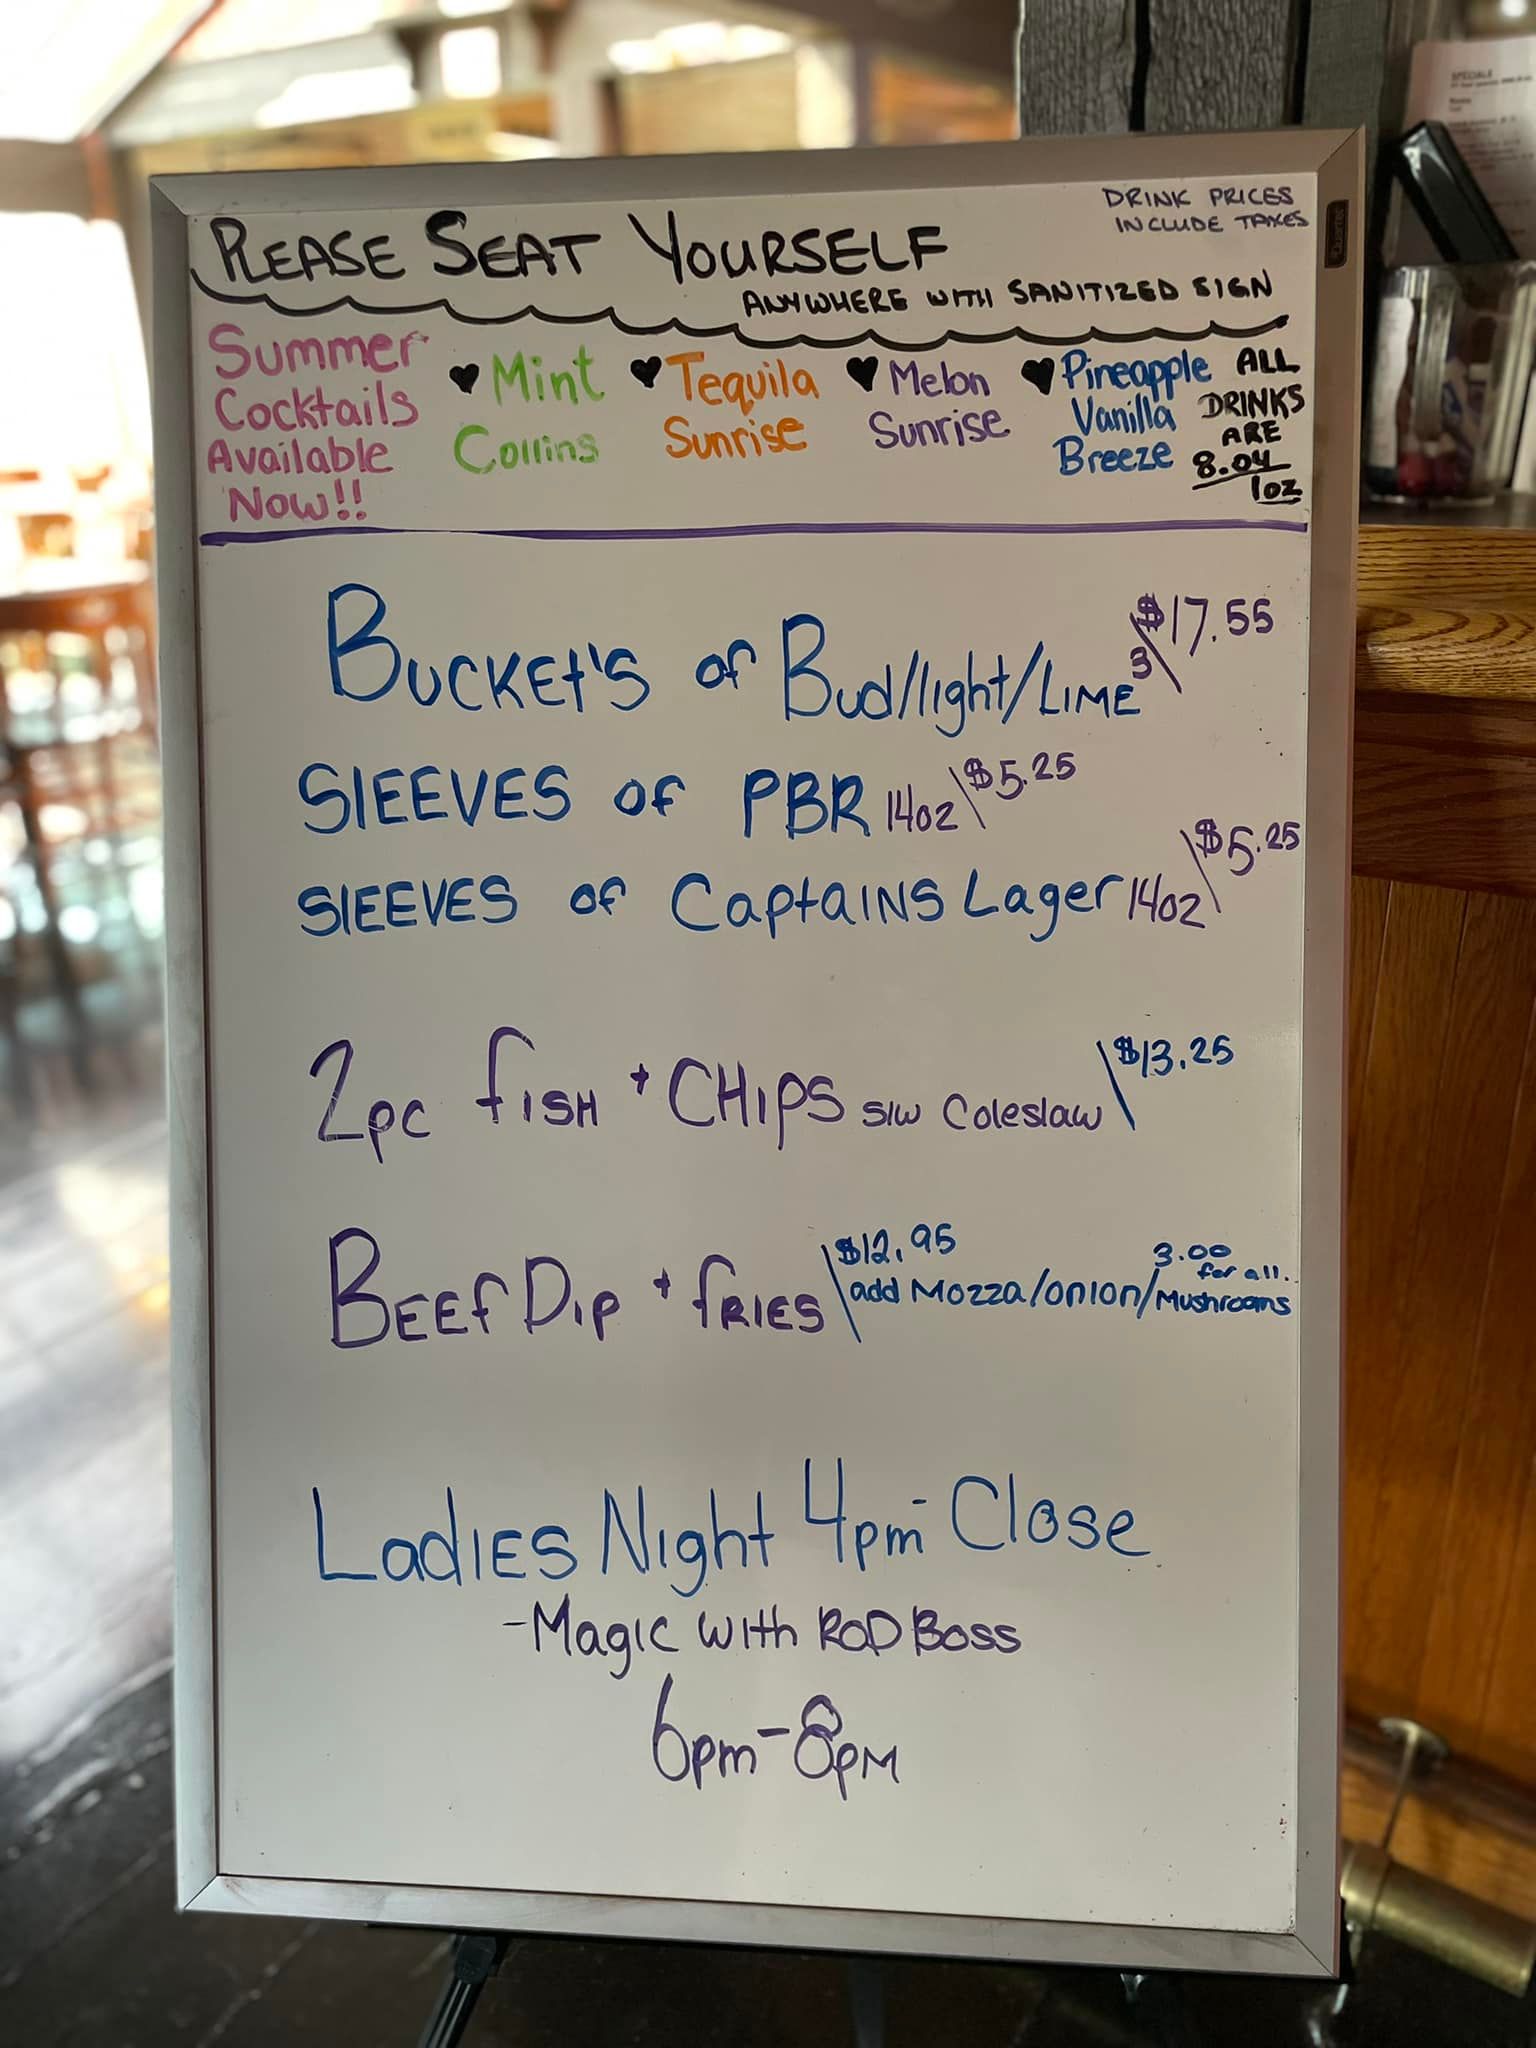 DRINK PRICES
INCLUDE TAXES
PLEASE SEAT YOURSELF
ANYWHERE WITH SANITIZED SIGN
Summer
Cocktails
Available
Now!!
♥ Mint
Collins
♥ Tequila
Sunrise
♥ Melon
Sunrise
♥ Pineapple
Vanilla
Breeze
ALL
DRINKS
ARE
8.04
1oz
BUCKET'S of Bud/light/LIME 3\$17.55
SLEEVES of PBR 14oz\$5.25
SLEEVES of Captains Lager 14oz\$5.25
2pc fish + CHIPS s/w Coleslaw\$13.25
BEEF Dip + fRIES\$12.95
add Mozza/onion/Mushrooms
3.00
for all.
Ladies Night 4pm - Close
- Magic with ROD BOSS
6pm - 8pm
Quartet